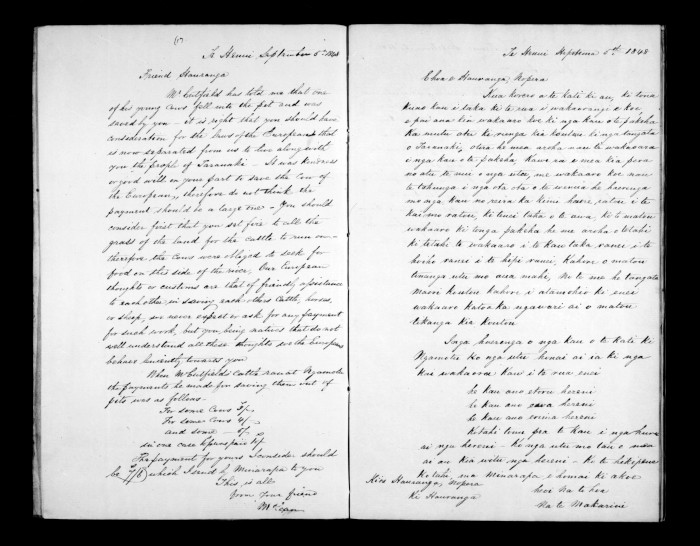 (1)
Te Henui September 6th 1848
Friend Hauranga
Mr Cutfield has told me that one
of his young Cows fell into the pit and was
saved by you - it is right that you should have
consideration for the Cows of the European that
is now separated from us to live along with
you the people of Taranaki - It was kindness
or good will on your part to save the Cow of
the European, therefore do not think the
payment should be a large one - You should
consider first that you set fire to all the
grass of the land for the cattle to run on -
therefore the cows were obliged to seek for
food on this side of the river, Our European
thoughts or customs are that of friendly assistance
to each other in saving each others Cattle, horses,
or sheep, we never expect or ask for any payment
for such work, but you, being natives that do not
well understand all these thoughts we the Europeans
behave leniently towards you
When Mr Cutfield's Cattle ran at Ngamotu
the payments he made for saving them out of
pits was as follows -
For some Cows 3/-
For some Cows 4/-
and some - 5/-
in one case he paid
The payment for yours I consider should
be which I send by Minarapa to you
This is all
from your friend
McLean
Te Henui Hepetema 6th 1848
Ehoa e Hauranga, Nopera
Kua korero a te Kati ki au, ki tona
kuao kau i taka ki te rua i wakaorangi e koe
e pai ana kia wakaaro koe ki nga kau o te pakeha
Ka motu atu ki renga kia koutou ki nga tangata
o Taranaki, otera he mea aroha nau te wakaoara
i nga kau o te pakeha Kaua ra e mea kia pera
no atu te nui o nga utu, me wakaaro koe nau
te tahunga i nga ota ota o te wenua hei haerenga
mo nga kau no reira ka kimi haere ratou i te
kai mo ratou, ki tenei taha o te awa, ki ta matou
wakaaro ki tenga pakeha he mea aroha o tetahi
ki tetahi te wakaaro i te kau taka ranei i te
hoiho ranei i te hipi ranei, Kahore o matou
tononga utu mo aua mahi, No te mea he tangata
Maori koutou kahore i atamohio ki enei
wakaaro katoa ka ngawari ai o matou
tikanga kia koutou
I nga haerenga o nga kau o te Kati ki
Ngamotu ko nga utu homai ai ia ki nga
kau wakaorana i te rua enei
he kau ano etoru hereni
he kau ano ewa hereni
he kau ano erima hereni
Kotahi tino pra te kau i nga huru
ai nga hereni - Ko nga utu mo tau o mea
ai au kia witu nga hereni - Ko te hikipene
Kotahi, ma Minarapa e homai ki akoe
Kia Hauranga, Nopera
Ki Hauranga
heoi na te hoa
Na te Makarini